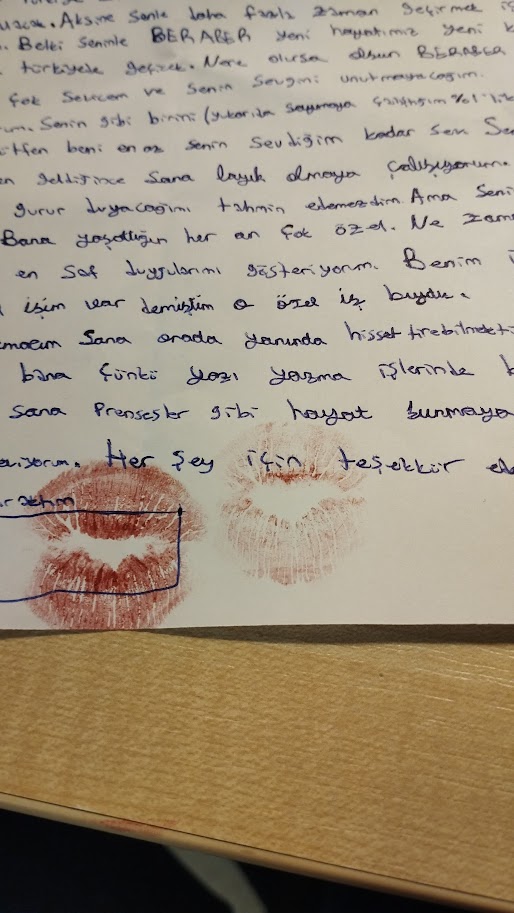 Aksine senle daha fazla zaman geçirmek
Belki seninle BERABER yeni hayatımız yeni
türkiyede geçicek. Nere olursa olsun BERABER
Çok Sevicem ve senin Sevgini unutmayacağım.
Senin gibi birini (yukarıda saymaya çalıştığım %1'
beni en az senin sevdiğim kadar sen
geldiğince sana layık olmaya çalışıyorum.
gurur duyacağımı tahmin edemezdim. Ama Seni
Bana yaşattığın her an çok özel. Ne
en saf duygularımı gösteriyorum. Benim
işim var demiştim o özel iş buydu.
Sana orada yanında hissettirebilmekti
bana çünkü yazı yazma işlerinde
sana Prensesler gibi hayat sunmaya
Her şey için teşekkür